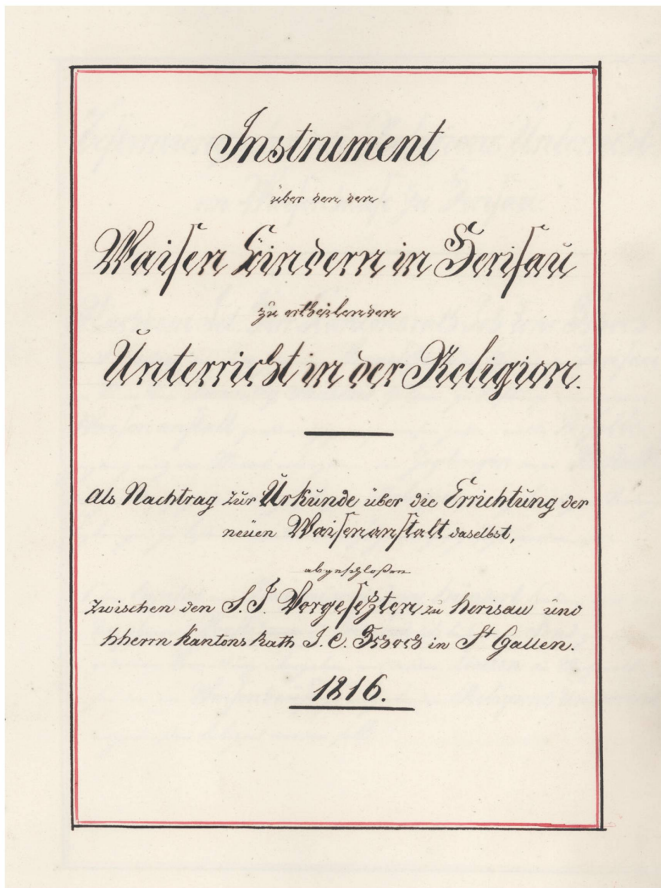 Instrument
über den den
Waisen Kindern in Herisau
zu ertheilenden
Unterricht in der Religion.
Als Nachtrag zur Urkunde über die Errichtung der
neuen Waisenanstalt daselbst,
abgeschloßen
zwischen den Vorgesetzten zu Herisau und
hherrn Kantons Rath J. C. in St Gallen.
1816.